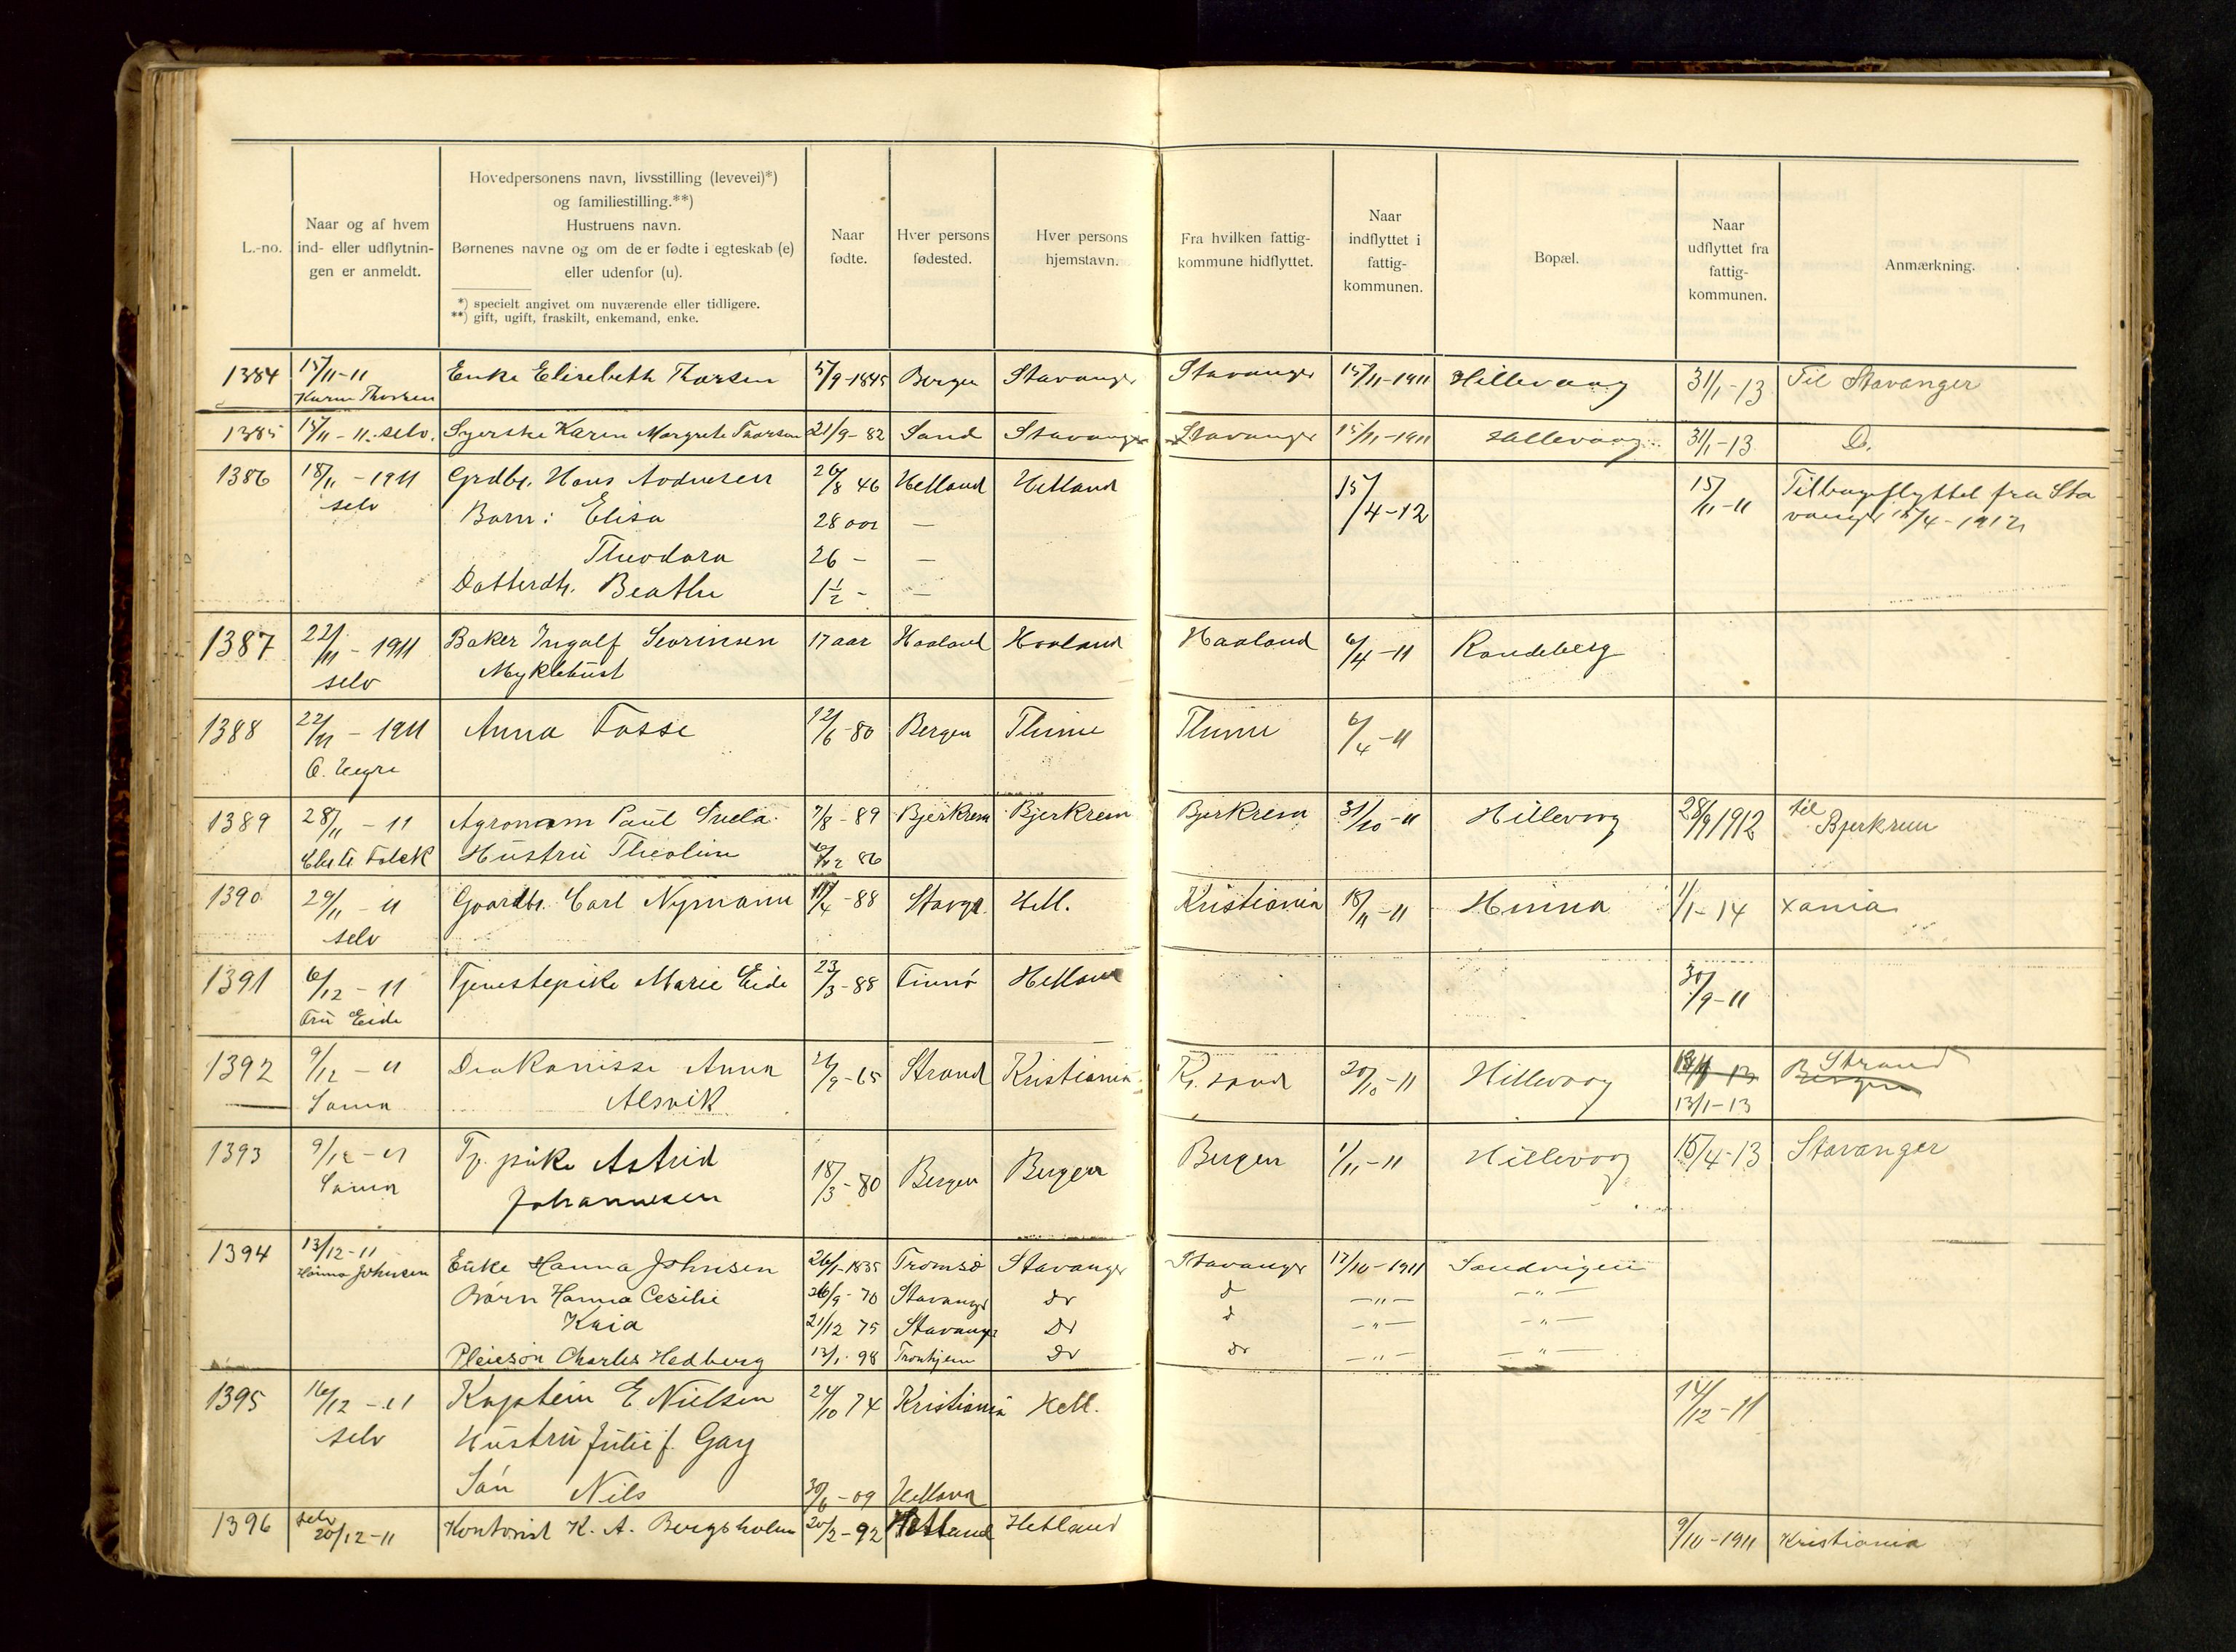 L.-no.
Naar og af hvem
ind- eller udflytnin-
gen er anmeldt.
Hovedpersonens navn, livsstilling (levevei)*)
og familiestilling.**)
Hustruens navn.
Børnenes navne og om de er fødte i egteskab (e)
eller udenfor (u).
*) specielt angivet om nuværende eller tidligere.
**) gift, ugift, fraskilt, enkemand, enke.
Naar
fødte.
Hver persons
fødested.
Hver persons
hjemstavn.
Fra hvilken fattig-
kommune hidflyttet.
Naar
indflyttet i
fattig-
kommunen.
Bopæl.
Naar
udflyttet fra
fattig-
kommunen.
Anmærkning.
1384 15/11-11 Enke Elisabeth Thorsen 5/9-1845 Bergen Stavanger Stavanger 15/11-1911 Hillevaag 31/1-13 Til Stavanger
Karen Thorsen
1385 15/11-11. selv. Syerske Karen Margrete Thorsen 21/9-82 Sand Stavanger Stavanger 15/11-1911 Hillevaag 31/1-13 D.
1386 18/11-1911 Grdbr. Hans 26/8 46 Hetland Hetland 15/4-12 15/11-11 Tilbageflyttet fra Sta
selv Barn: Elisa 28 aar — vanger 15/4-1912
Theodora 26 — —
Datterdtr. Beathe 1½ - —
1387 22/11-1911 Baker Ingolf Severinsen 17 aar Haaland Haaland Haaland 6/4-11 Randeberg
selv Myklebust
1388 22/11-1911 Anna Fosse 12/6-80 Bergen Thime Thime 6/4-11
1389 28/11-11 Agronom Paul 7/8-89 Bjerkrem Bjerkrem Bjerkrem 31/10-11 Hillevaag 28/9 1912 til Bjerkrem
Hustru Theoline 86
1390 29/11-11 Gaardbr. Carl Nymann 11/4-88 Stavgr. Hetl. Kristiania 18/11-11 Hinna 1/1-14 xania
selv
1391 6/12-11 Tjenestepike Marie Eide 23/3-88 Finnø Hetland 30/9-11
Fru Eide
1392 9/12-11 Diakonisse Anna 26/9-65 Strand Kristiania Kr.sand 20/10-11 Hillevaag Strand
Samme Alsvik 13/1-13 Bergen
1393 9/12-11 Tj. pike Astrid 18/3-80 Bergen Bergen Bergen 1/11-11 Hillevaag 15/4-13 Stavanger
Samme Johannesen
1394 13/12-11 Enke Hanna Johnsen 26/1-1835 Tromsø Stavanger Stavanger 17/10-1911 Sandvigen
Hanna Johnsen Børn Hanna Cesilie 26/9-70 Stavanger do d —"— —"—
Kaia 21/12 75 Stavanger Do d —"— —"—
Pleiesøn Charles Hedberg 13/1-98 Tronhjem Do do —"— —"—
1395 16/12-11 Kaptein E Nielsen 24/10 74 Kristiania Hetl. 14/12-11
selv Hustru Julie f. Gay
Søn Nils 30/6-09 Hetland
1396 selv Kontorist K. A. Bergsholm 20/2-92 Hetland Hetland 9/10-1911 Kristiania
20/12-11